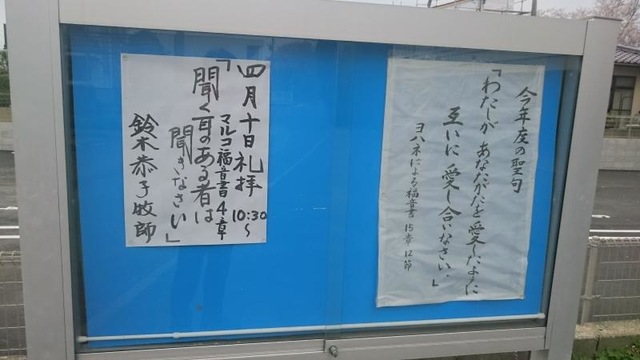 今年度の聖句
「わたしが あなたがたを愛したように
互いに愛し合いなさい。」
ヨハネによる福音書 15章12節
四月十日礼拝 10:30～
マルコ福音書4章
「聞く耳のある者は
聞きなさい」
鈴木恭子牧師